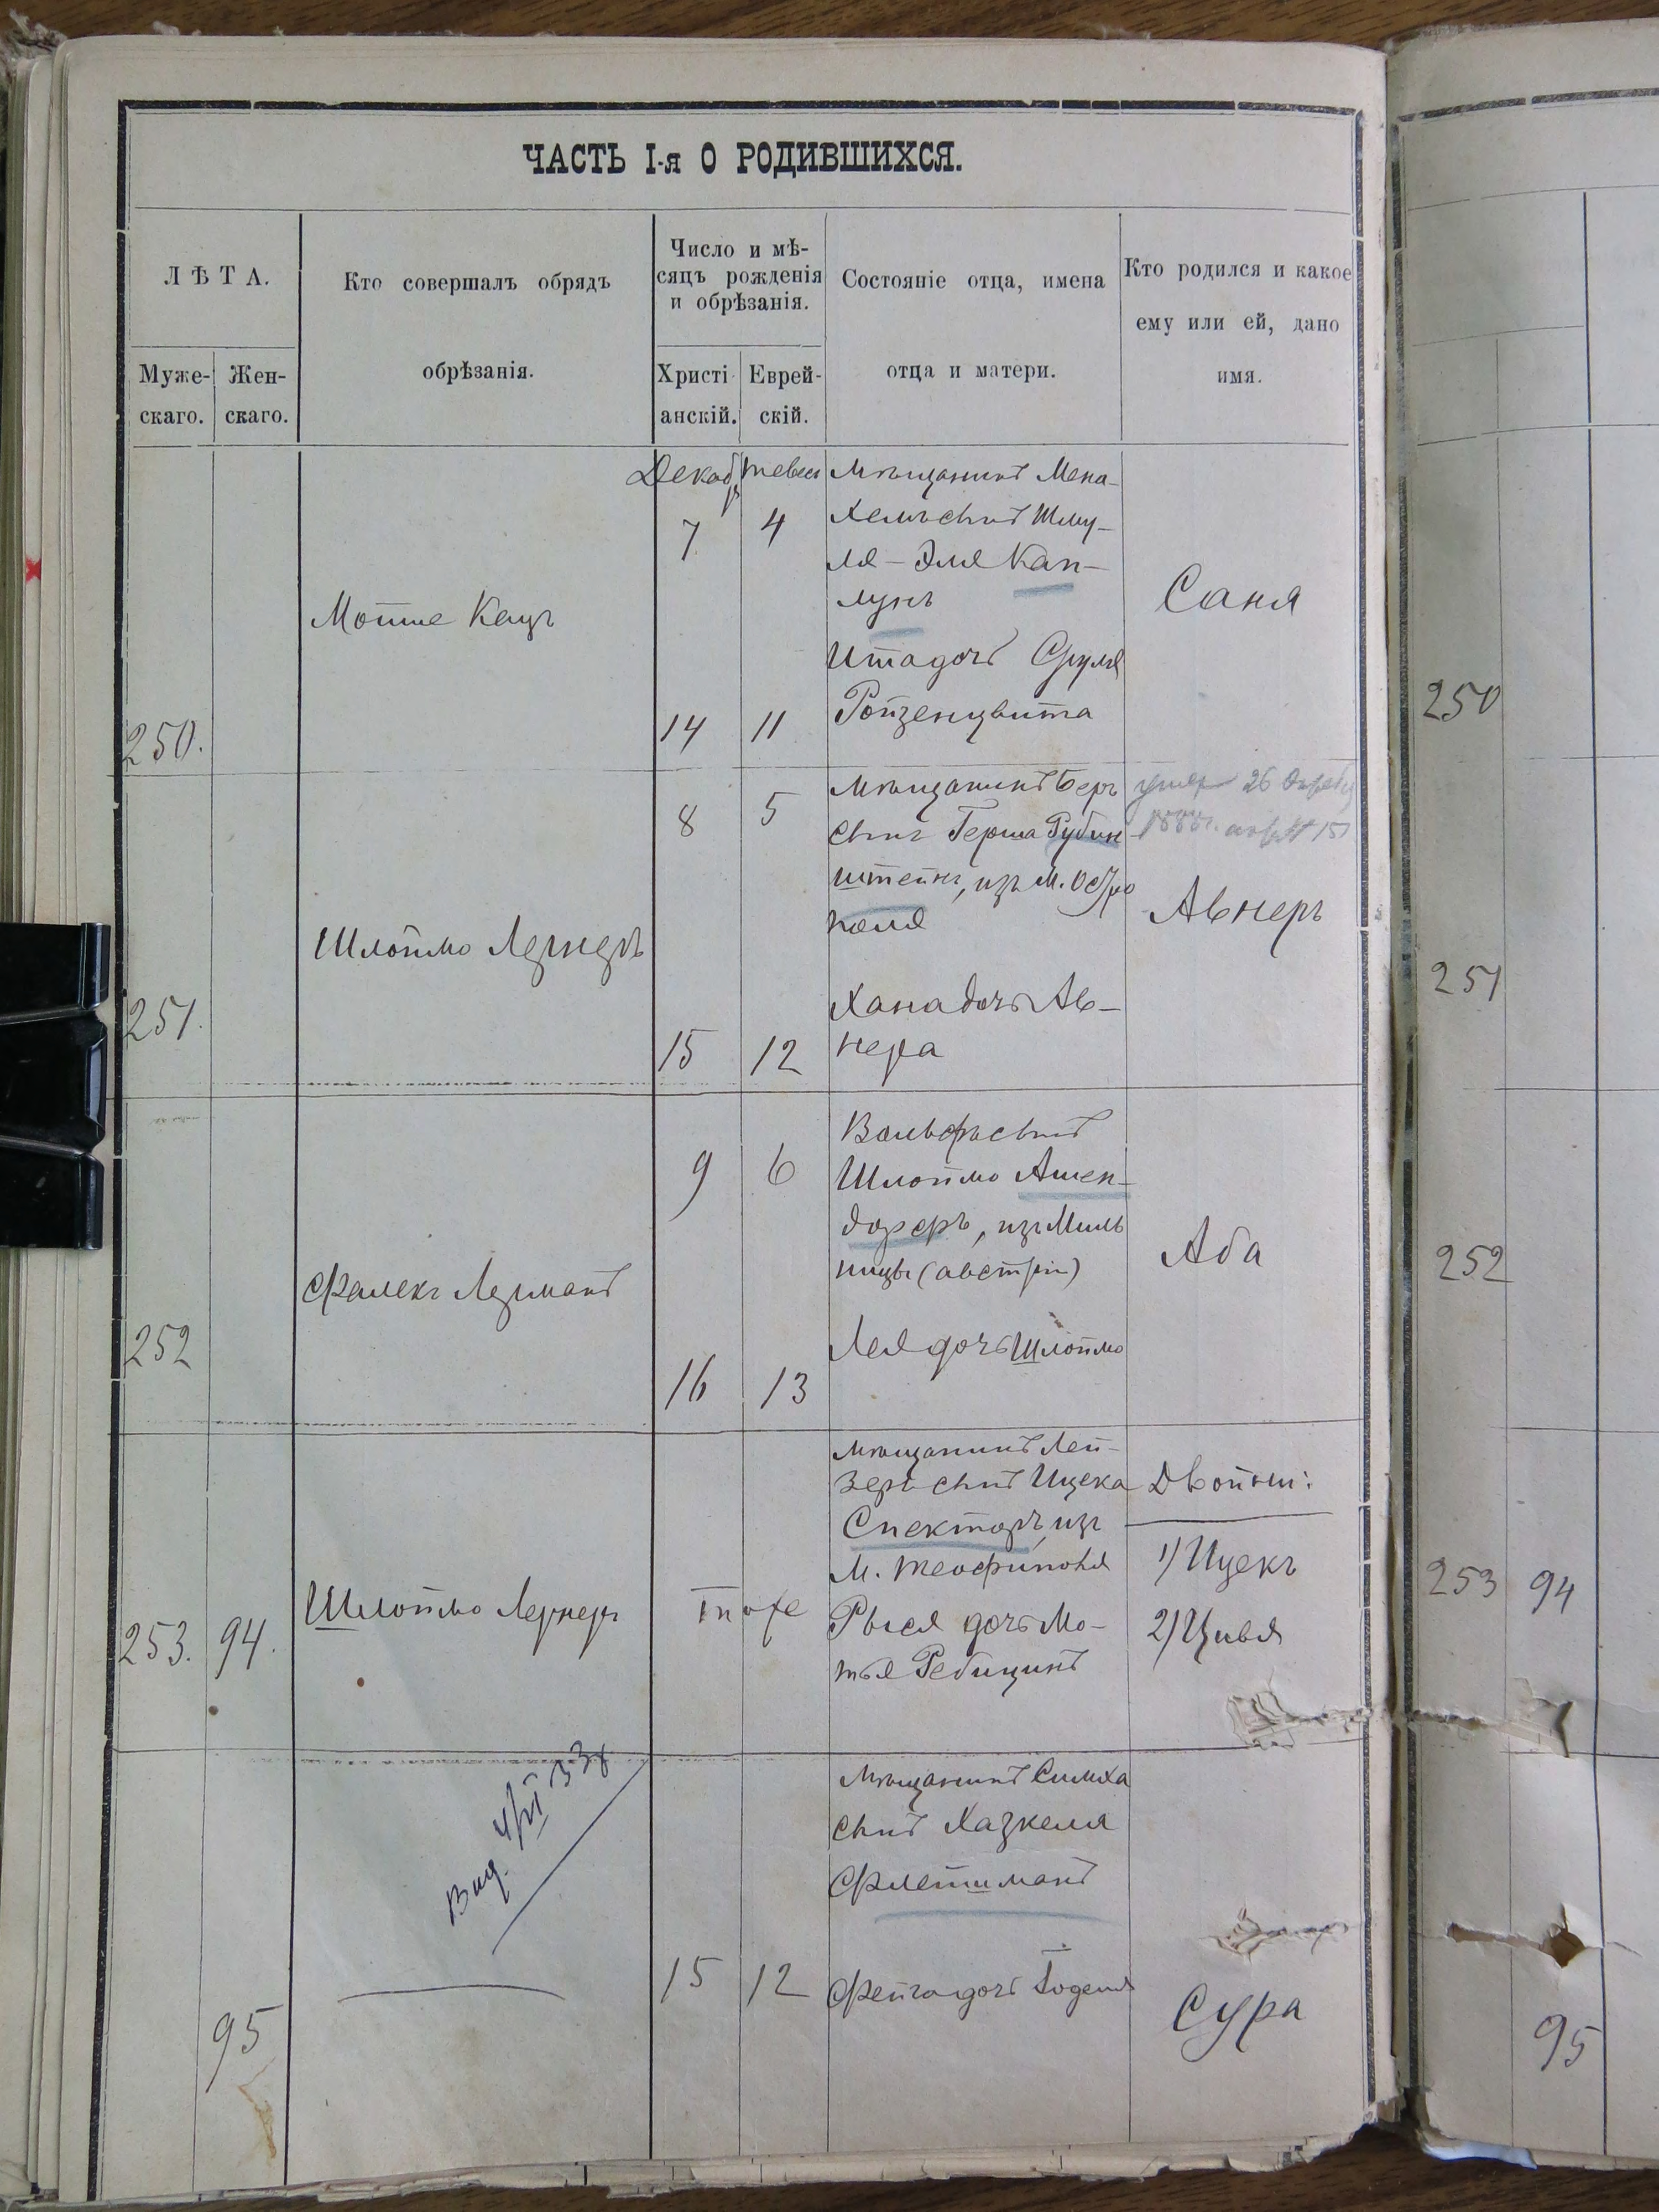 ЧАСТЬ I-я О РОДИВШИХСЯ.
ЛѢТА.
Муже-
скаго.
Жен-
скаго.
Кто совершалъ обрядъ
обрѣзанія.
Число и мѣ-
сяцъ рожденія
и обрѣзанія.
Христі
анскій.
Еврей-
скій.
Состояніе отца, имена
отца и матери.
Кто родился и какое
ему или ей, дано
имя.
250.
Мошке Кацъ
Декабр
7
14
4
11
Мѣщанинъ Мена-
хемъ сынъ Шму-
ля-Эля Кап-
лунъ
Ита дочь Сруля
Ройзенцвита
Саня
250
251.
Шлоймо Лернеръ
8
15
5
12
Мѣщанинъ Беръ
сынъ Герша Рубин
штейнъ, изъ М. Остро
поля
Хана дочь Ав-
нера
умер 26
Авнеръ
251
252
Фалекъ Лерманъ
9
16
6
13
Вольфъ сынъ
Шлоймо Ашен-
дорфъ, изъ Миль
ницы (австріи)
Лея дочь Шлоймо
Аба
252
253.
94.
Шлоймо Лернеръ
Тоже
Мѣщанинъ Лей-
зеръ сынъ Ицека
Спекторъ, изъ
М. Теофиполя
Рыся дочь Мо-
тья Ребицинъ
Двойни:
1) Ицекъ
2) Цивья
253
94
95
Выд.
15
12
Мѣщанинъ Симха
сынъ Хазкеля
Флейшманъ
Фейга дочь Годеля
Сура
95